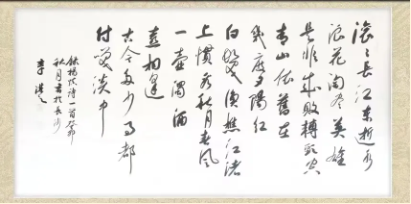 滚滚长江东逝水
浪花淘尽英雄
是非成败转头空
青山依旧在
几度夕阳红
白发渔樵江渚
上惯看秋月春风
一壶浊酒
喜相逢
古今多少事都
付笑谈中
李